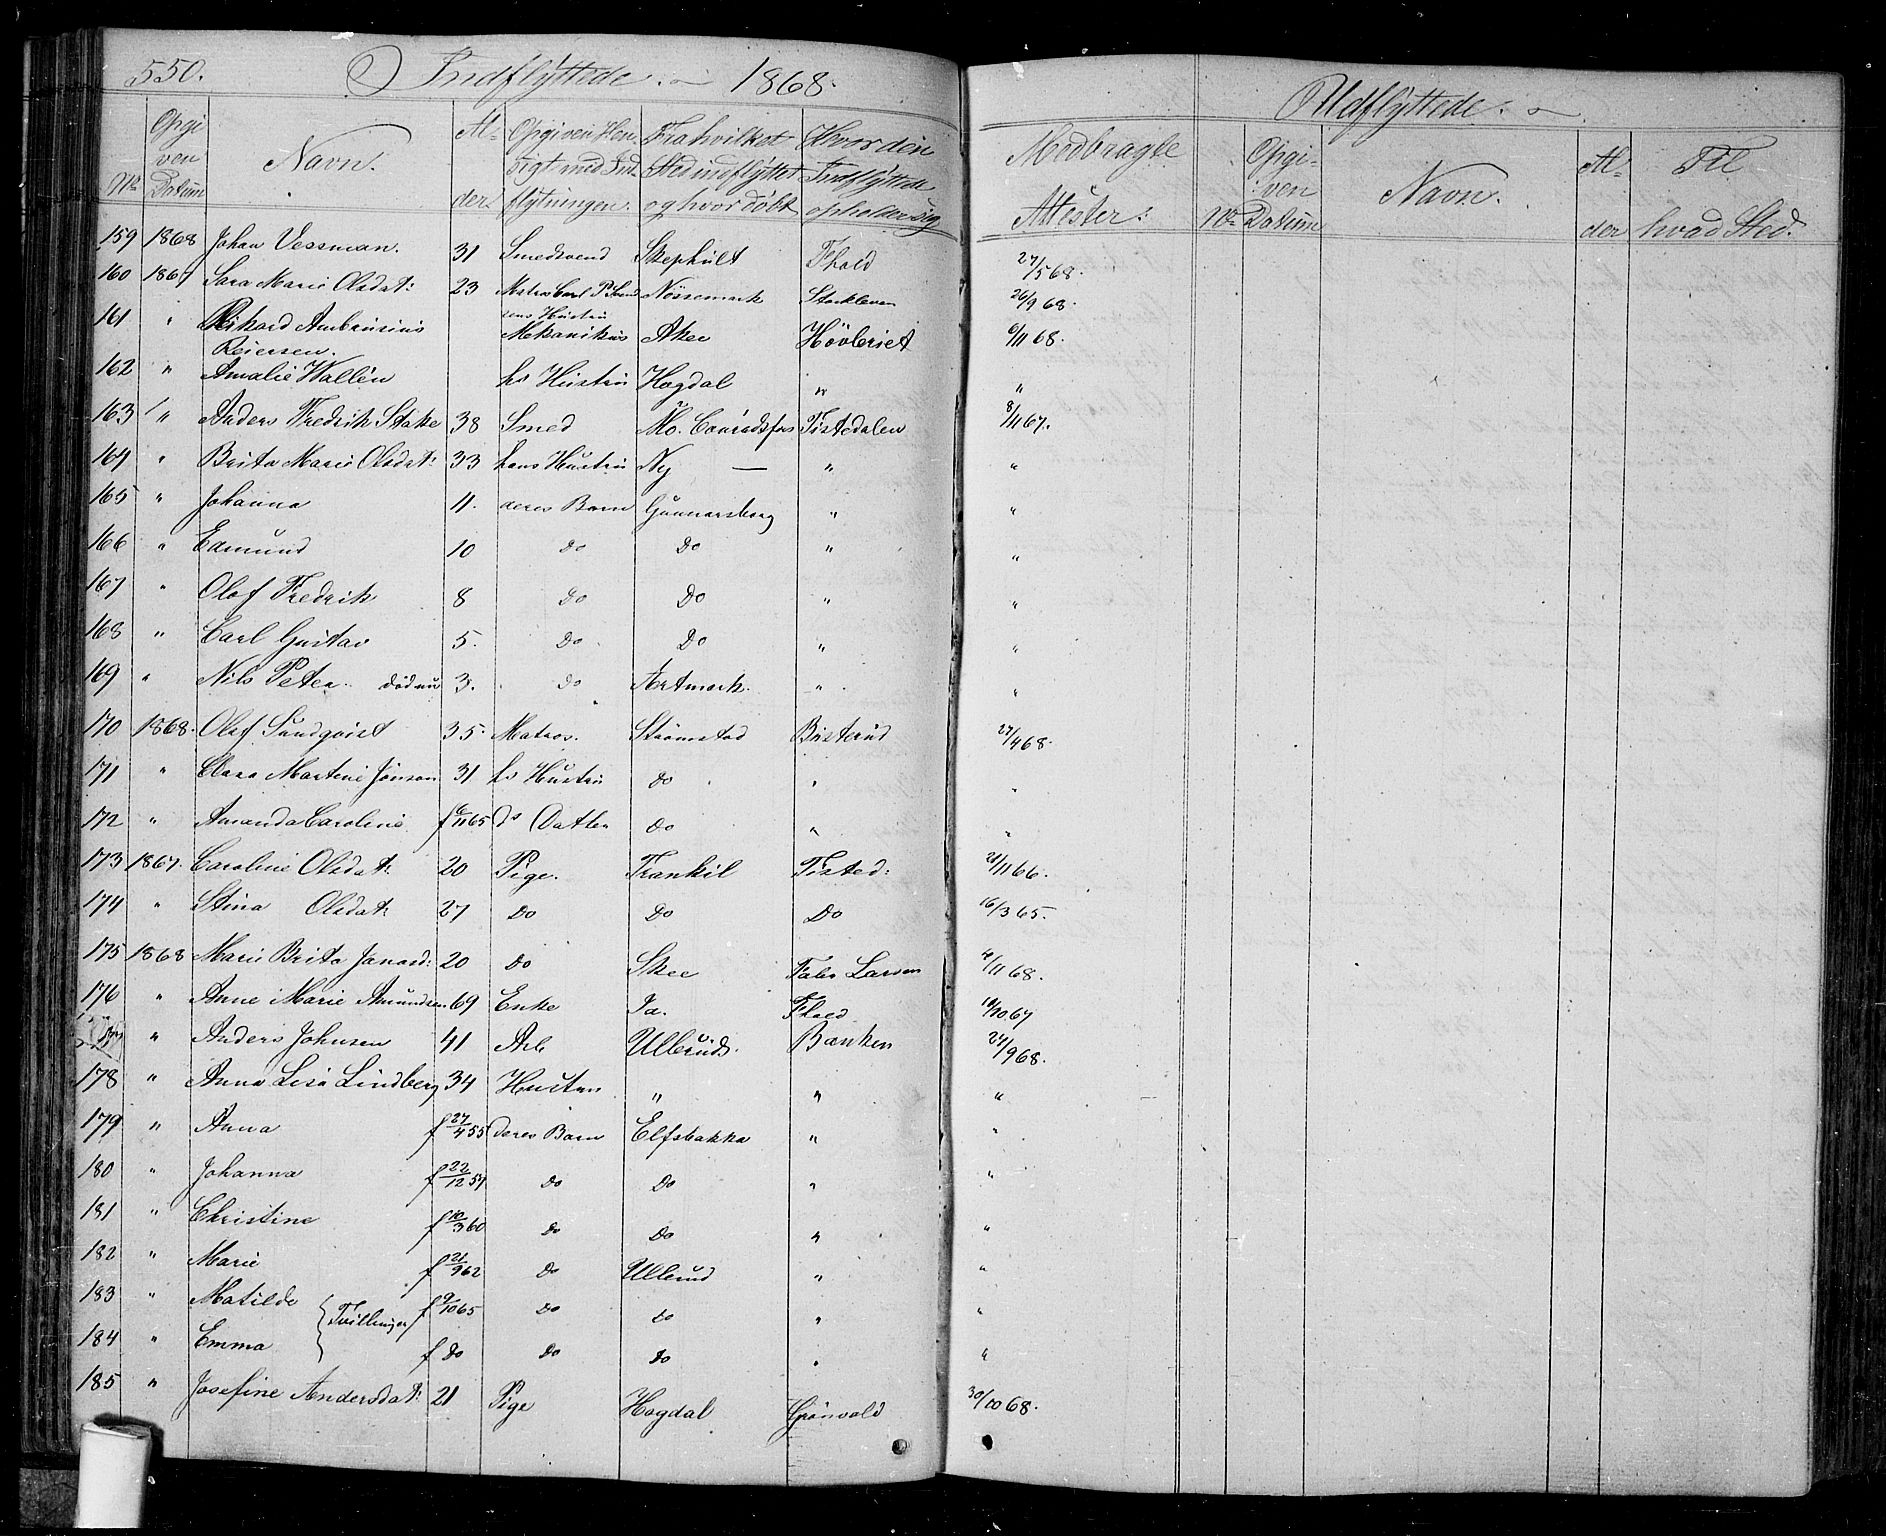 550. Indflyttede. 1868.
Udflyttede.
No Opgiven Datum Navn. Alder. Opgiven Hensigt med Indflytningen. Fra hvilket Sted indflyttet og hvor döbt Hvor den Indflyttede opholder sig Medbragte Attester: No Opgiven Datum Navn. Alder Til hvad Sted.
159 1868 Johan Vessman. 31 Smedsvend Skephult Fhald 27/5 68.
160 1867 Sara Marie Olsdat: 23 Matros Carl P. Nössemark Stockleven 26/9 68.
sens Hustru
161 " Rikard Ambrosius Mekanikus Akee Hövleriet 6/11 68.
Reiersen.
162 " Amalie Wallén hs Hustru Hogdal " "
163 " Anders Fredrik Stake 38 Smed Mo. Tistedalen 8/11 67.
164 " Brita Marie Olsdat: 33 hans Hustru Ny — " "
165 " Johanna 11. deres Barn Gunnarsborg " "
166 " Edmund 10 Do Do " "
167 " Olof Fredrik 8 Do Do " "
168 " Carl Gustav 5. Do Do " "
169 " Nils Peter. död nu 3. Do Artmark. " "
170 1868. Olof Sundqvist 35. Matros. Strömstad Bisterud 27/4 68.
171 " Clara Martine Jonson 31 hs Hustru do " "
172 " Amanda Caroline f 6/11 65 ds Datter do " "
173 1867. Caroline Olsdat: 20 Pige. Frankil Tisted: 21/11 66.
174 " Stina Olsdat: 27 Do Do Do 16/3 65.
175 1868 Marie Brita 20 Do Skee Larsen 4/11 68.
176 " Anne Marie Amundsen 69 Enke Id. Fhald 10/10 67
177 " Anders Johnsen 41 Arb Ullerud. Banken 24/9 68.
178 " Anna Lisa Lindberg 34 Hustru " " "
179 " Anna f 27/4 55 deres Barn Elfsbakka " "
180 " Johanna f 22/12 57 Do Do " "
181 " Christine f 10/3 60 Do Do " "
182 " Marie f 21/9 62 Do Ullerud " "
183 " Matilde f 9/10 65 Do do " "
Tvillinger
184 " Emma f Do Do do " "
185 " Josefine Andersdat: 21 Pige Hogdal Grönvold 30/10 68.